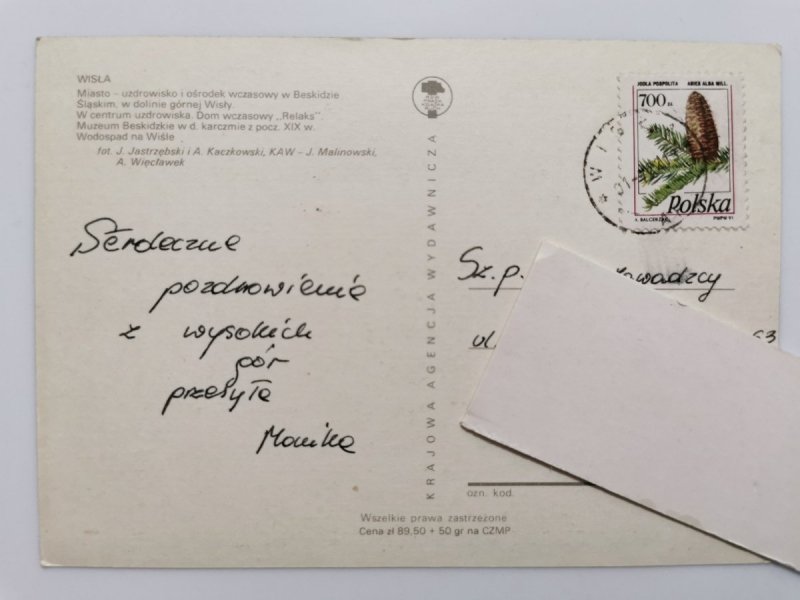 WISŁA
Miasto – uzdrowisko i ośrodek wczasowy w Beskidzie
Śląskim, w dolinie górnej Wisły.
W centrum uzdrowiska. Dom wczasowy „Relaks”.
Muzeum Beskidzkie w d. karczmie z pocz. XIX w.
Wodospad na Wiśle
fot. J. Jastrzębski i A. Kaczkowski, KAW – J. Malinowski,
A. Więcławek
Serdeczne
pozdrowienia
z wysokich
gór
przesyła
Monika
KRAJOWA AGENCJA WYDAWNICZA
JODŁA POSPOLITA ABIES ALBA MILL.
700 zł
Polska
PWPW 91
WISŁA
Sz. p. owadzcy
ul. 63
ozn. kod.
Wszelkie prawa zastrzeżone
Cena zł 89,50 + 50 gr na CZMP